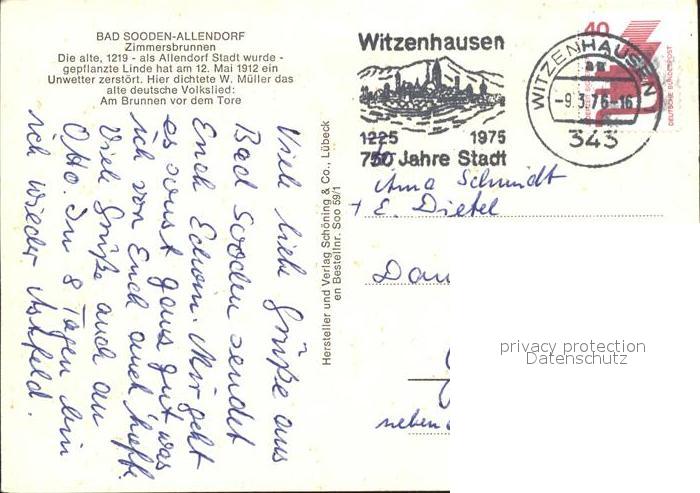 BAD SOODEN-ALLENDORF
Zimmersbrunnen
Die alte, 1219 - als Allendorf Stadt wurde -
gepflanzte Linde hat am 12. Mai 1912 ein
Unwetter zerstört. Hier dichtete W. Müller das
alte deutsche Volkslied:
Am Brunnen vor dem Tore
Viele liebe Grüße aus
Bad Sooden sendet
Euch Edwin. Mir geht
es sonst ganz gut was
ich von Euch auch hoffe.
Viele Grüße auch an
Otto. In 8 Tagen bin
ich wieder
Hersteller und Verlag Schöning & Co., Lübeck
en Bestellnr. Soo 59/1
Witzenhausen
1225 1975
750 Jahre Stadt
WITZENHAUSEN
-9.3.76-16
343
40
DEUTSCHE BUNDESPOST
Anna Schmidt
+ E. Dietel
Dan
neben
privacy protection
Datenschutz